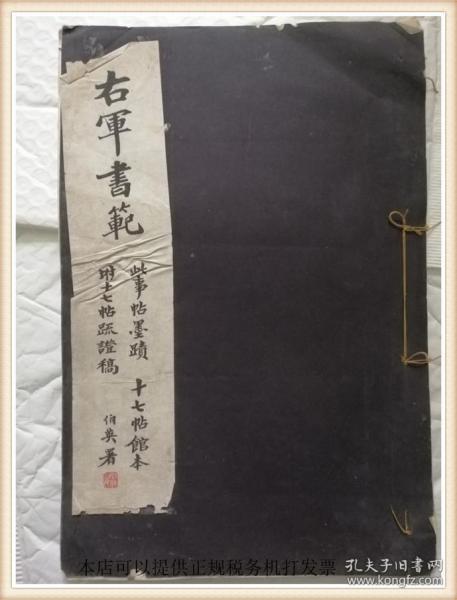 右軍書範
此事帖墨蹟 十七帖館本
附十七帖疏證稿
伯英署
本店可以提供正规税务机打发票
孔夫子旧书网
www.kongfz.com